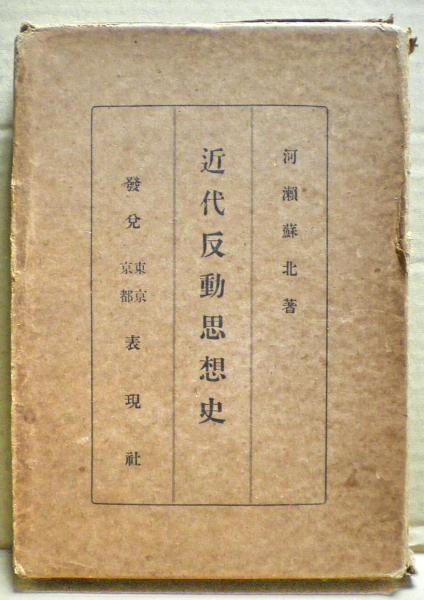 河瀬蘇北著
近代反動思想史
發兌 東京 京都 表現社